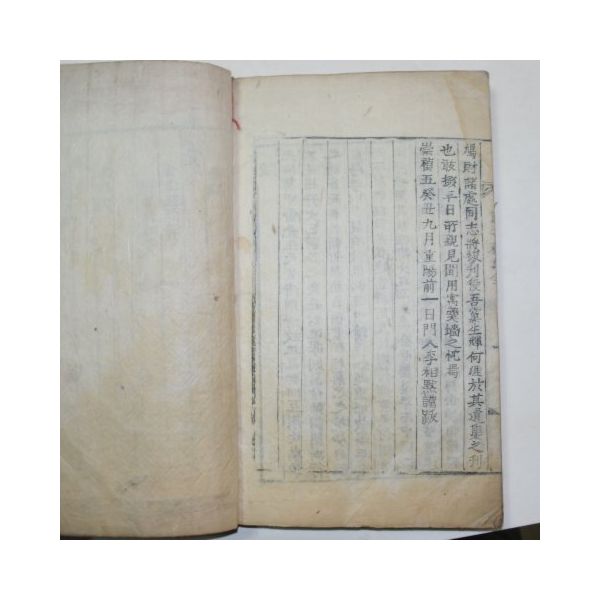 鳩財諸處同志將竣刋役吾黨生輝何涯於其遺集之刋
也敢掇平日所親見聞用寓羹墻之忱焉
崇禎五癸丑九月重陽前一日門人李相㸃謹跋